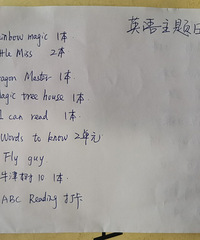 英语主题日
inbow magic 1本
ttle Miss 2本
agon Master 1本
agic tree house 1本
I can read 1本
Words to know 2单元
Fly guy
牛津树 10 1本
ABC Reading 打卡